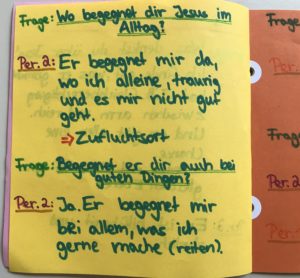 Frage: Wo begegnet dir Jesus im
Alltag?
Per. 2: Er begegnet mir da,
wo ich alleine, traurig
und es mir nicht gut
geht.
⇒ Zufluchtsort
Frage: Begegnet er dir auch bei
guten Dingen?
Per. 2: Ja. Er begegnet mir
bei allem, was ich
gerne mache (reiten).
Frage:
Per.
Frage
Per. 2
Per.